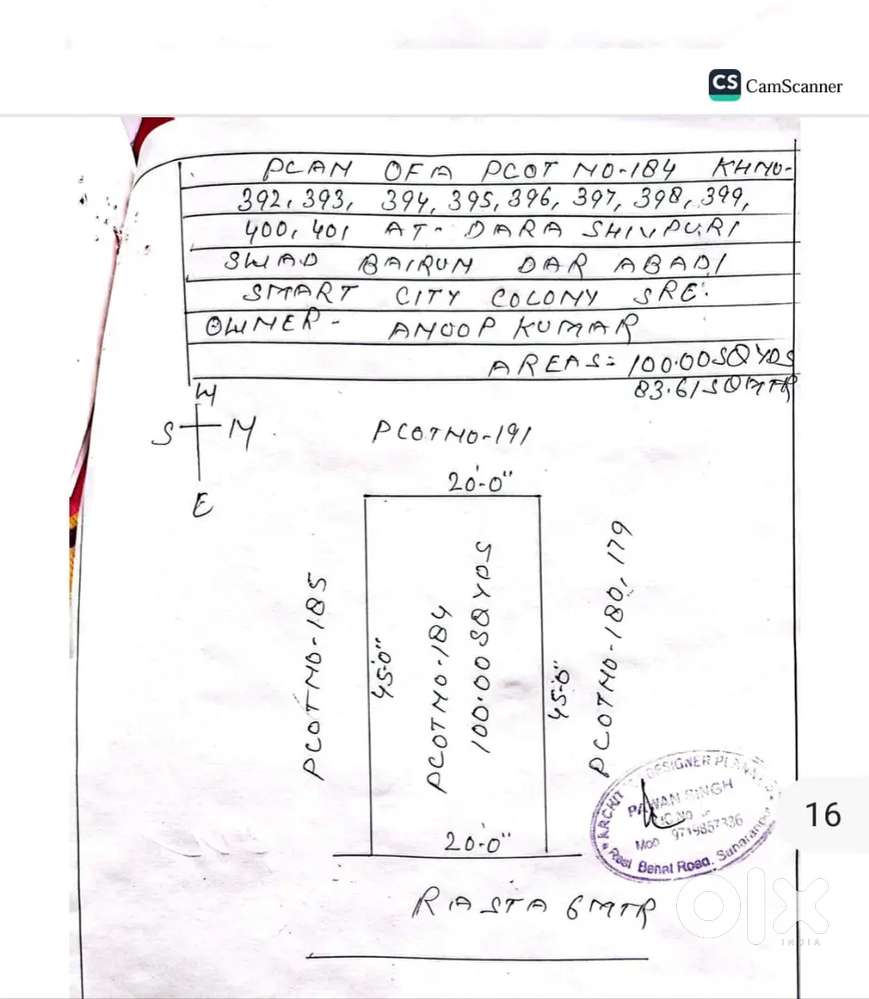 CS CamScanner
PLAN OF A PLOT NO-184 KHNO-
392, 393, 394, 395, 396, 397, 398, 399,
400, 401 AT- DARA SHIVPURI
SWAD BAIRUN DAR ABADI
SMART CITY COLONY SRE.
OWNER- ANOOP KUMAR
AREAS= 100.00 SQ YDS
83.61 SQ MTR
W
S N
E
PLOT NO-191
20'-0"
PLOT NO-185
45'-0"
PLOT NO-184
100.00 SQ YDS
45'-0"
PLOT NO-180, 179
20'-0"
RASTA 6 MTR
DESIGNER
PAWAN SINGH
Mob 9719857336
Road,
16
olx
INDIA